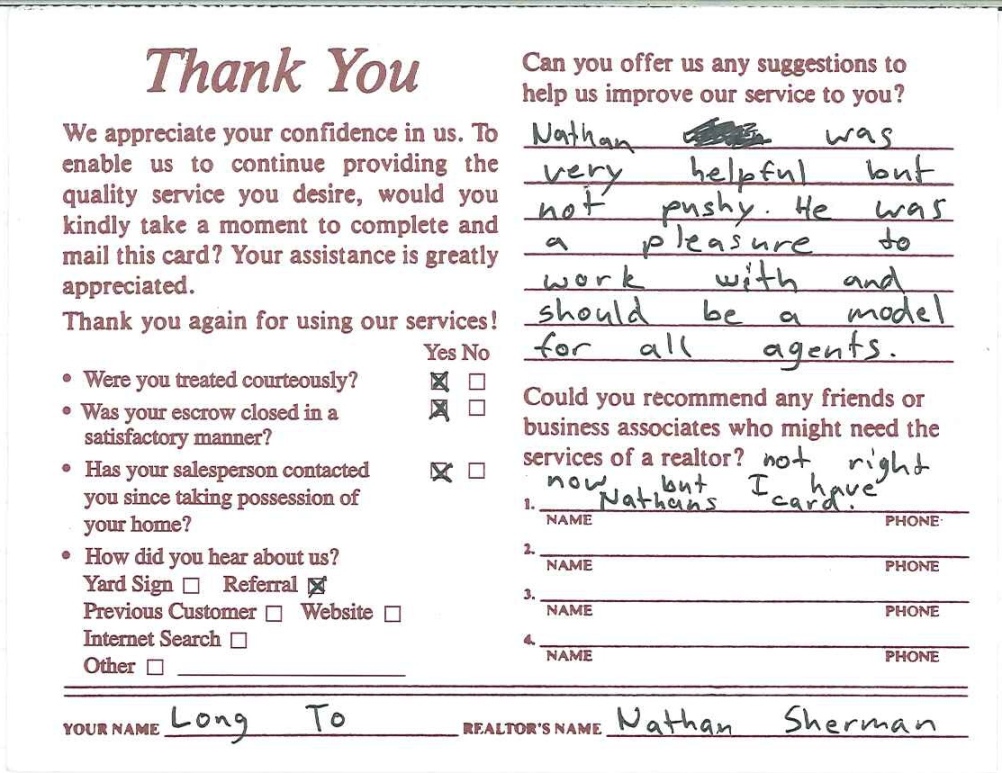 Thank You
We appreciate your confidence in us. To
enable us to continue providing the
quality service you desire, would you
kindly take a moment to complete and
mail this card? Your assistance is greatly
appreciated.
Thank you again for using our services!
Yes No
• Were you treated courteously? ☒ ☐
• Was your escrow closed in a ☒ ☐
satisfactory manner?
• Has your salesperson contacted ☒ ☐
you since taking possession of
your home?
• How did you hear about us?
Yard Sign ☐ Referral ☒
Previous Customer ☐ Website ☐
Internet Search ☐
Other ☐
Can you offer us any suggestions to
help us improve our service to you?
Nathan was
very helpful but
not pushy. He was
a pleasure to
work with and
should be a model
for all agents.
Could you recommend any friends or
business associates who might need the
services of a realtor? not right
now but I have
1. Nathans card.
NAME PHONE
2.
NAME PHONE
3.
NAME PHONE
4.
NAME PHONE
YOUR NAME Long To REALTOR'S NAME Nathan Sherman